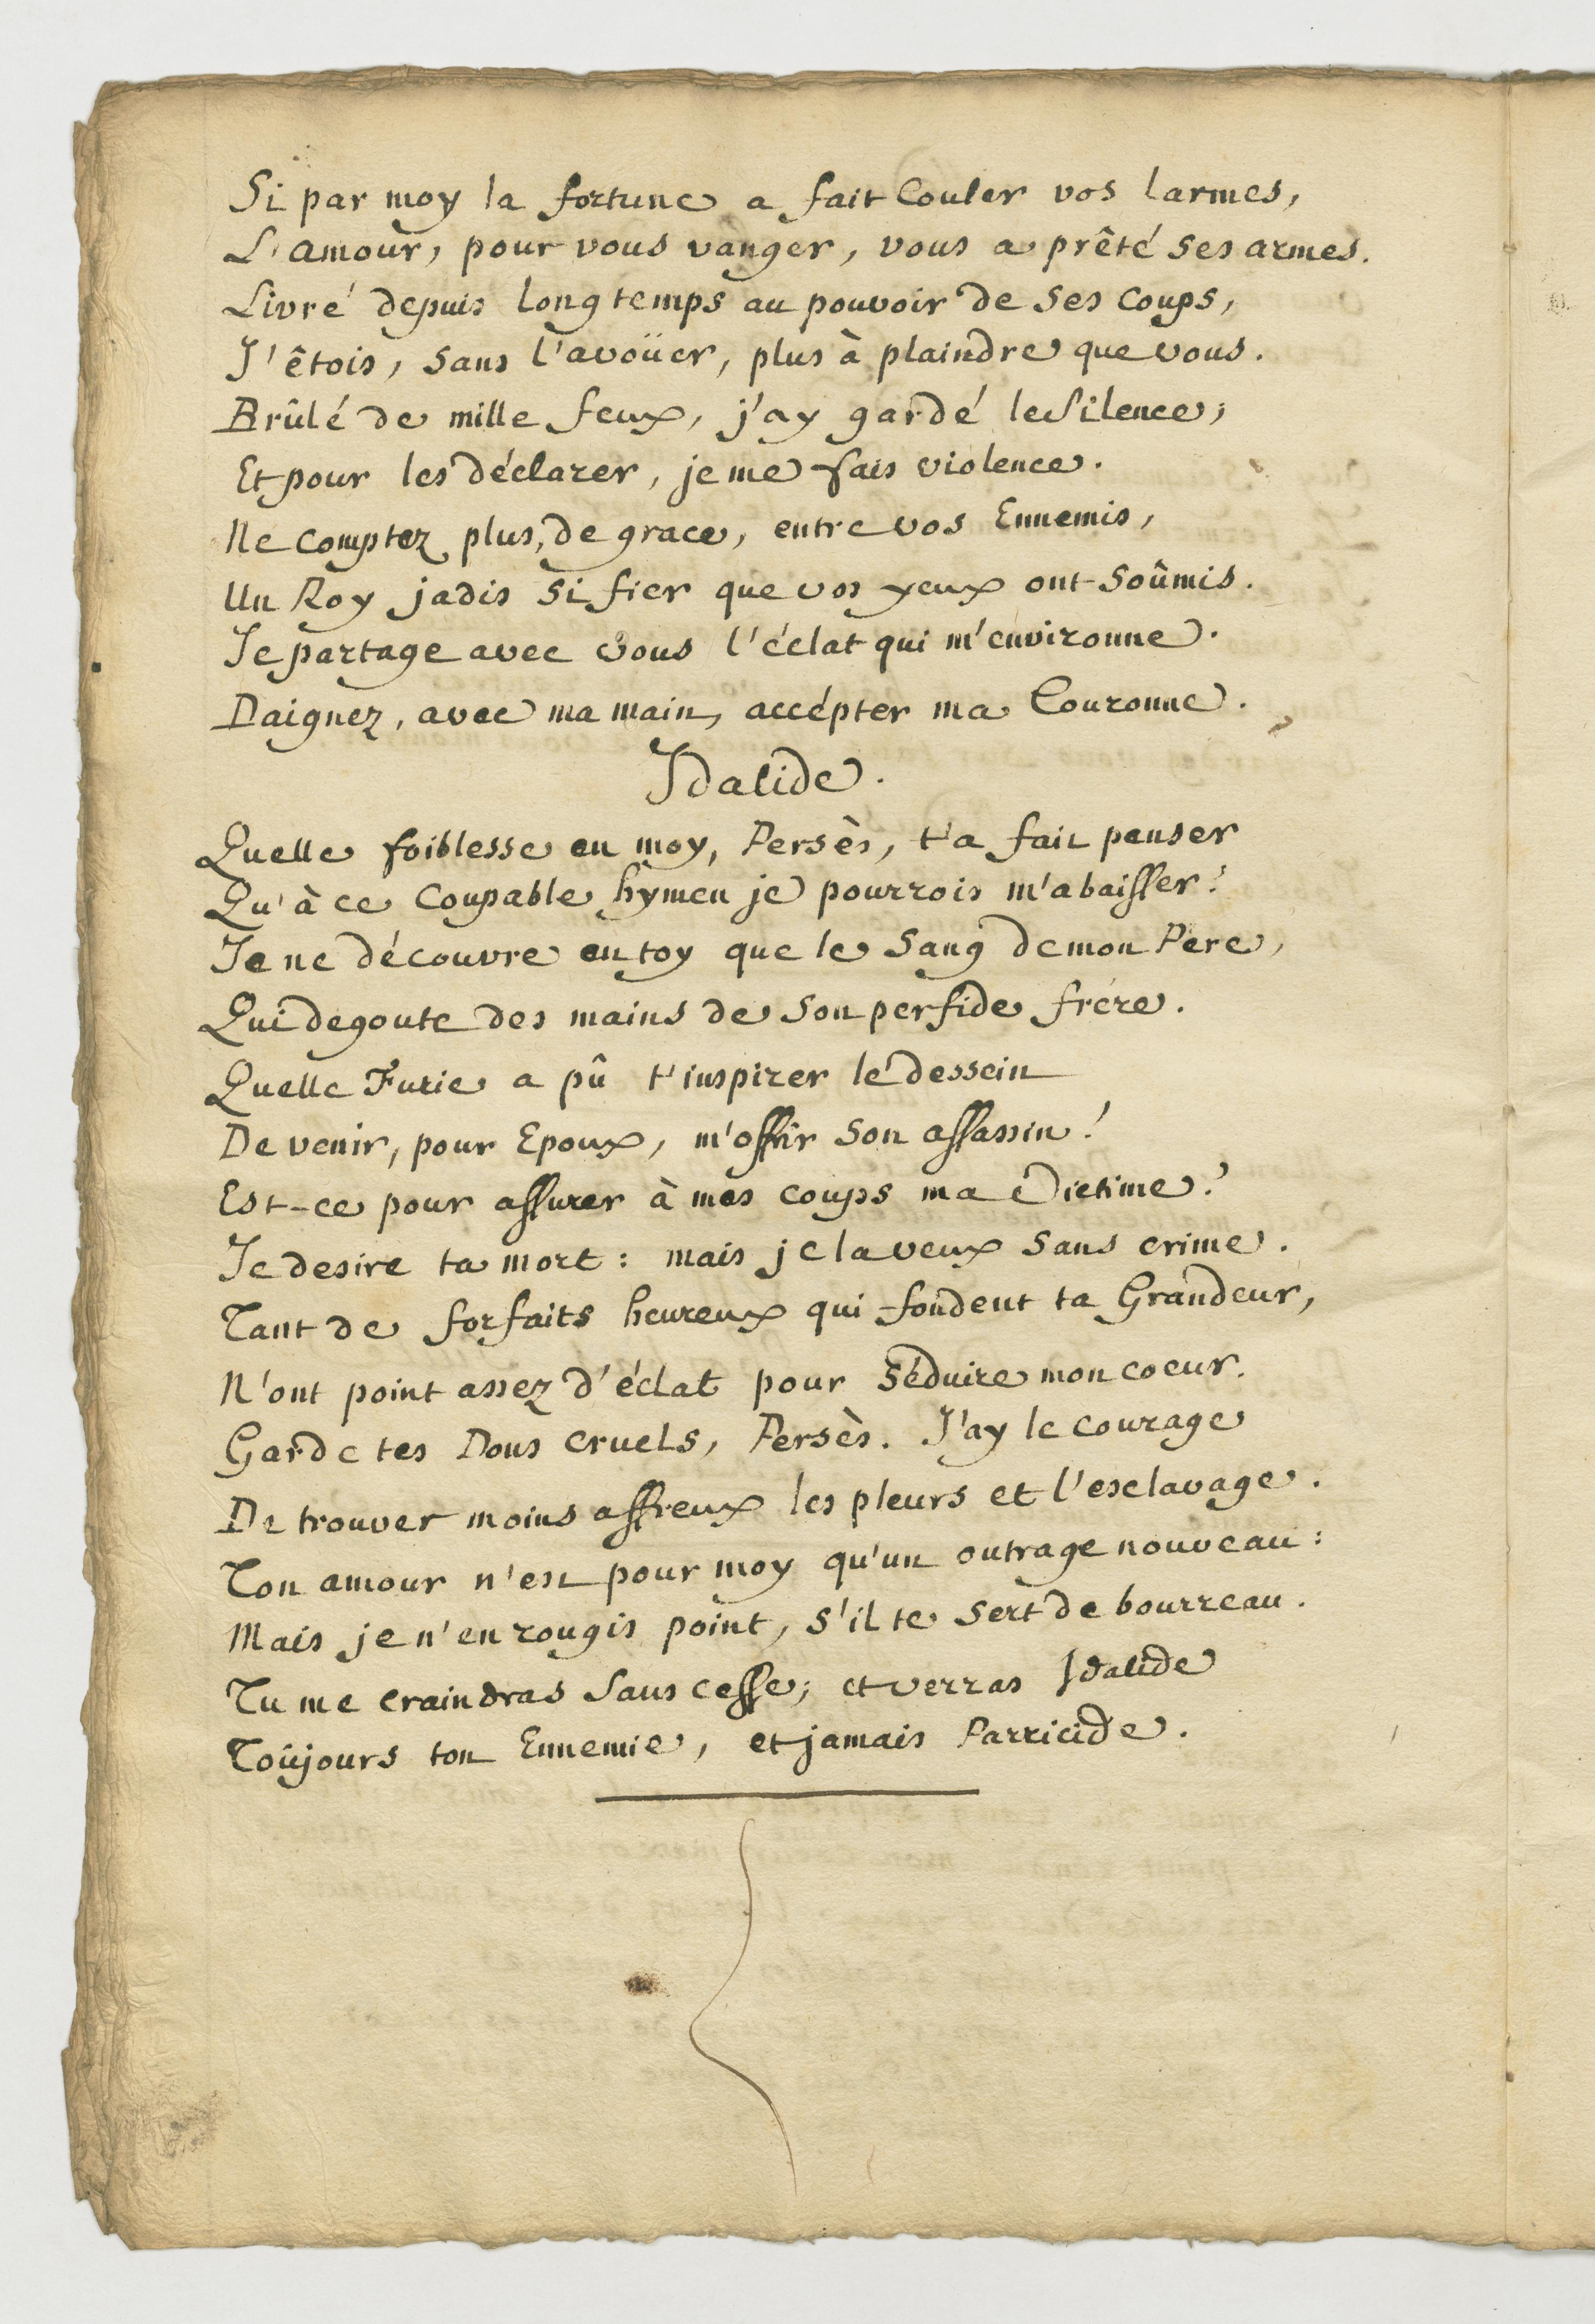 Si par moy la fortune a fait Couler vos larmes,
L'amour, pour vous vanger, vous a prêté ses armes.
Livré depuis longtemps au pouvoir de ses coups,
J'êtois, sans l'avoüer, plus à plaindre que vous.
Brûlé de mille feux, j'ay gardé le silence;
Et pour les déclarer, je me fais violence.
Ne comptez plus, de grace, entre vos Ennemis,
Un Roy jadis si fier que vos yeux ont soûmis.
Je partage avec vous l'éclat qui m'environne.
Daignez, avec ma main, accépter ma Couronne.
Idalide.
Quelle foiblesse en moy, Persès, t'a fait penser
Qu'à ce Coupable hymen je pourrois m'abaisser?
Je ne découvre en toy que le sang de mon Pere,
Qui degoute des mains de son perfide frére.
Quelle Furie a pû t'inspirer le dessein
De venir, pour Epoux, m'offrir son assassin!
Est-ce pour assurer à mes coups ma Victime?
Je desire ta mort: mais je la veux sans crime.
Tant de forfaits heureux qui fondent ta Grandeur,
N'ont point assez d'éclat pour séduire mon coeur.
Garde tes Dons cruels, Persès. J'ay le courage
De trouver moins affreux les pleurs et l'esclavage.
Ton amour n'est pour moy qu'un outrage nouveau:
Mais je n'en rougis point, s'il te sert de bourreau.
Tu me craindras sans cesse; et verras Idalide
Toûjours ton Ennemie, et jamais Parricide.